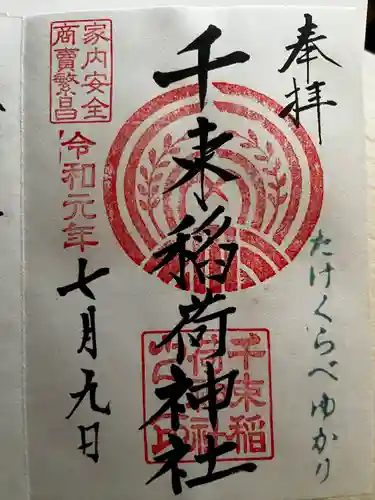 奉拝
たけくらべゆかり
千束稲荷神社
千束稲
荷神社
家内安全
商賣繁昌
令和元年
七月九日